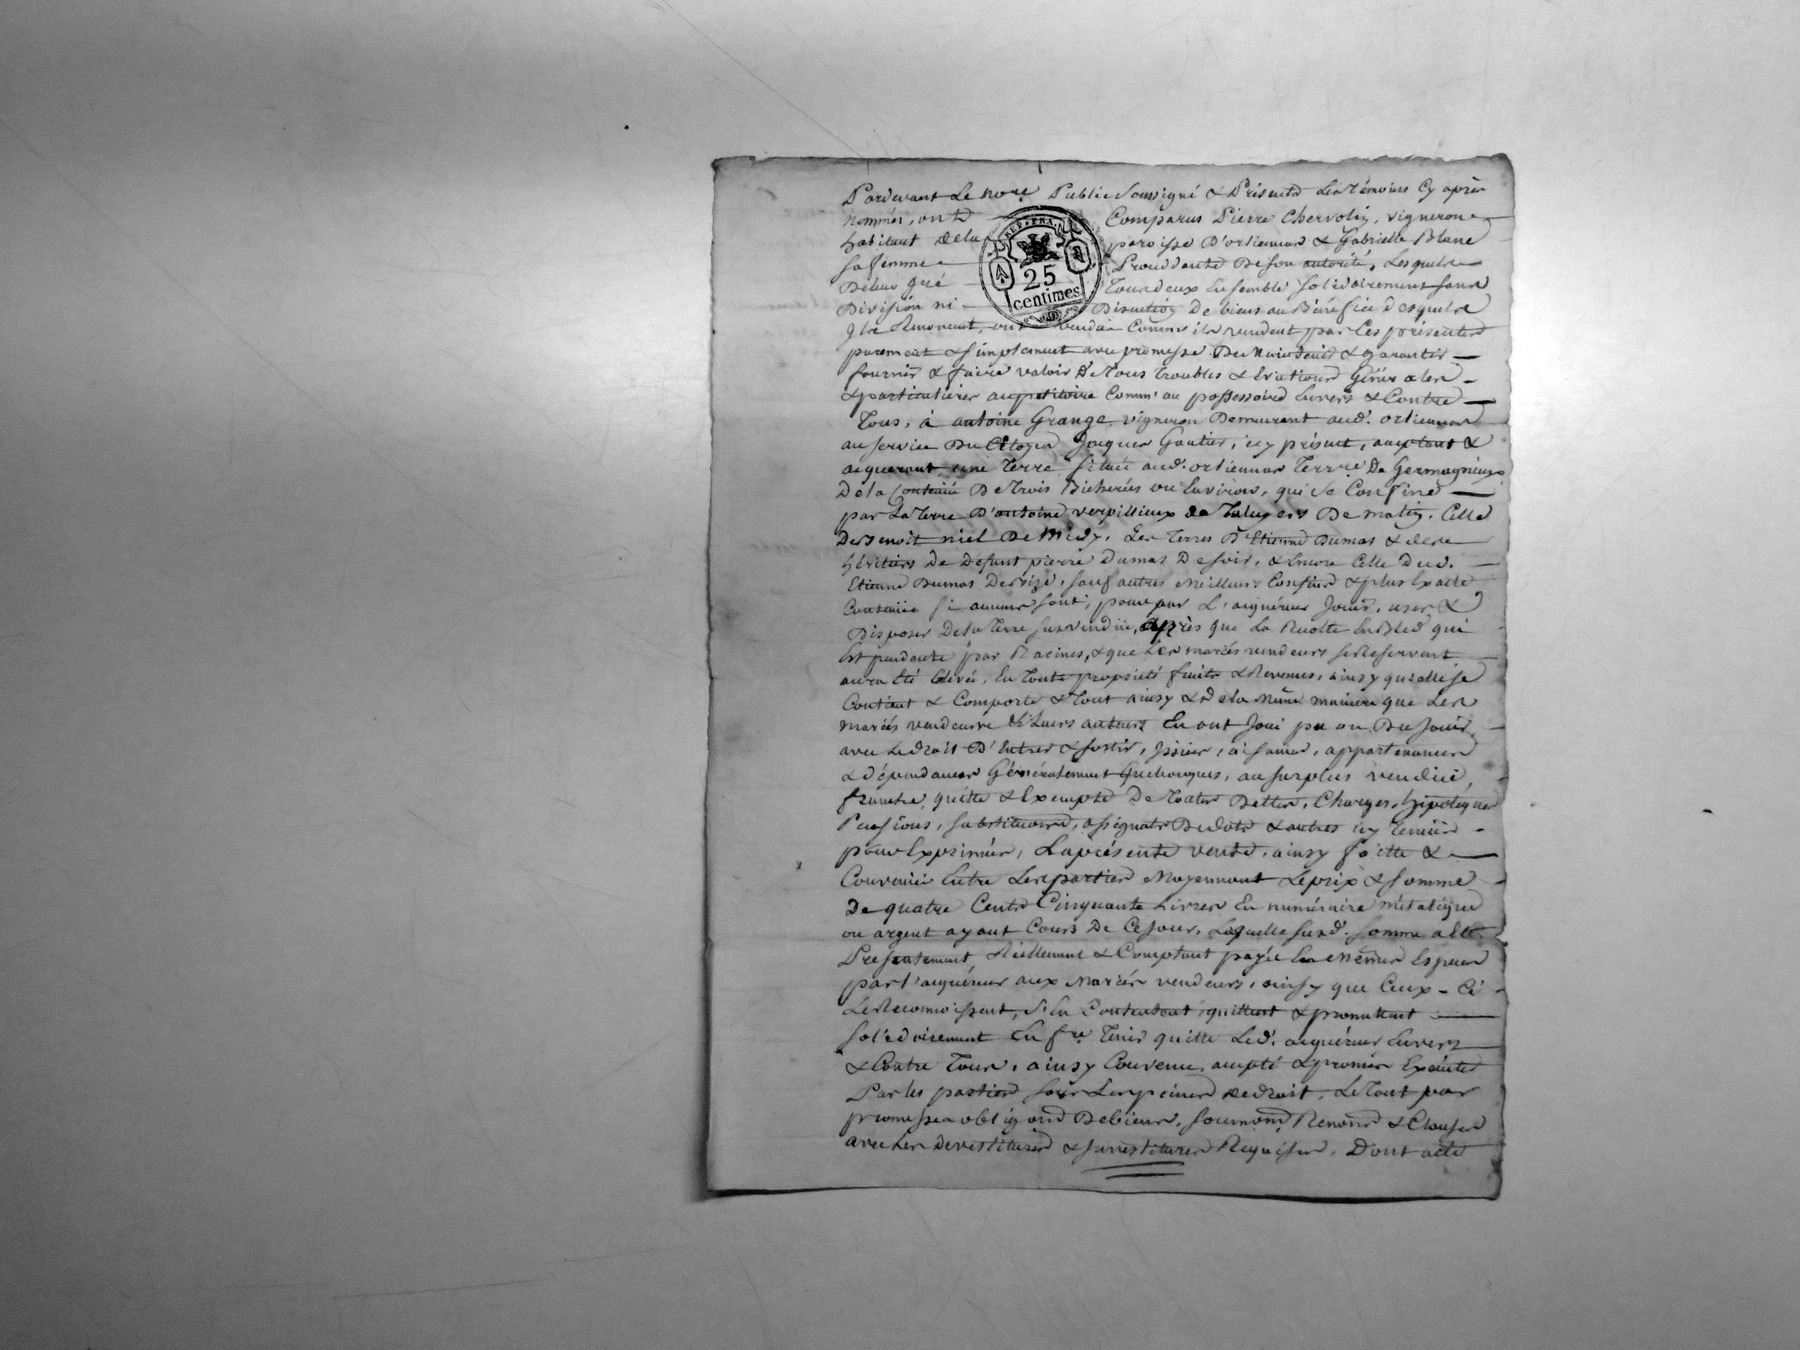 Pardevant Le no.re Public Soussigné & Présents Les Témoins Cy après
Nommés, ont Comparus Pierre Chervolin, vigneron
habitant dela paroisse D'orliennas & Gabrielle Blanc
REP. FRA.
25
centimes
sa femme Procédante De son autorité, Lesquels
De leur gré Tous deux Ensemble solidairement sans
Division ni Discution De biens au Bénéfice desquels
Ils Renoncent, ont vendu Comme ils vendent par Ces présentes
purement & simplement avec promesse De Maintenir & garantir
fournir & faire valoir De Tous Troubles & Evictions Génér ales
& particulieres au petitoire Comm' au possessoire Envers & Contre
Tous, à antoine Grange, vigneron Demeurant aud. orliennas
au service Du Citoyen Jacques Gautier, icy présent, acceptant &
aquerant, une Terre située aud. orliennas Terroir De Germagnieux
De la Contenüe De Trois Bicherées ou Environ, qui se Confine
par La Terre D'antoine verpillieux de Taluyers De matin. Celle
De Benoit niel De Midy. Les Terres D'Etienne Dumas & des
héritiers De Defunt pierre Dumas De soir, & Encore Celle Dud.
Etienne Dumas De bize, sauf autres meilleurs Confins & plus Exacte
Contenüe si aucuns sont, pour par L'aquéreur Jouir, user &
Disposer De la Terre sus vendüe, après que La Recolte En Bled qui
Est pendante par Racines, & que Les mariés vendeurs se Réservent
aura Eté Levée, En Toute propriété fruits & Revenus, ainsy qu'elle se
Contient & Comporte & Tout ainsy & De la même maniere que Les
mariés vendeurs & Leurs auteurs En ont Joui pu ou Du Jouir,
avec Le droit D'Entrer & sortir, Issües, aisances, appartenances
& dépendances Généralement quelconques, au surplus vendüe,
franche, quitte & Exempte De Toutes Dettes, Charges, hipotéques
Pensions, substitutions, assignats De dots & autres icy Tenües
pour Exprimées, La présente vente, ainsy faitte &
Convenüe Entre Les parties Moyennant Le prix & somme
De quatre Cents Cinquante Livres En numéraire métalique
ou argent ayant Cours De Ce Jour, Laquelle susd. somme a Eté
Présentement Réellement & Comptant payée En Mêmes Especes
par l'aquéreur aux Mariés vendeurs, ainsy que Ceux-Ci
Le Reconnoissent, s'En Contentent, quittent & promettent
solidairement En f.re Tenir quitte Led. aquéreur Envers
& Contre Tous, ainsy Convenu accepté & promis Exécuter
Par les parties sous Les peines de droit, Le Tout par
promesses obligons De biens, soumons, Renons & Clauses
avec Les Devestitures & Investitures Requises, Dont acte